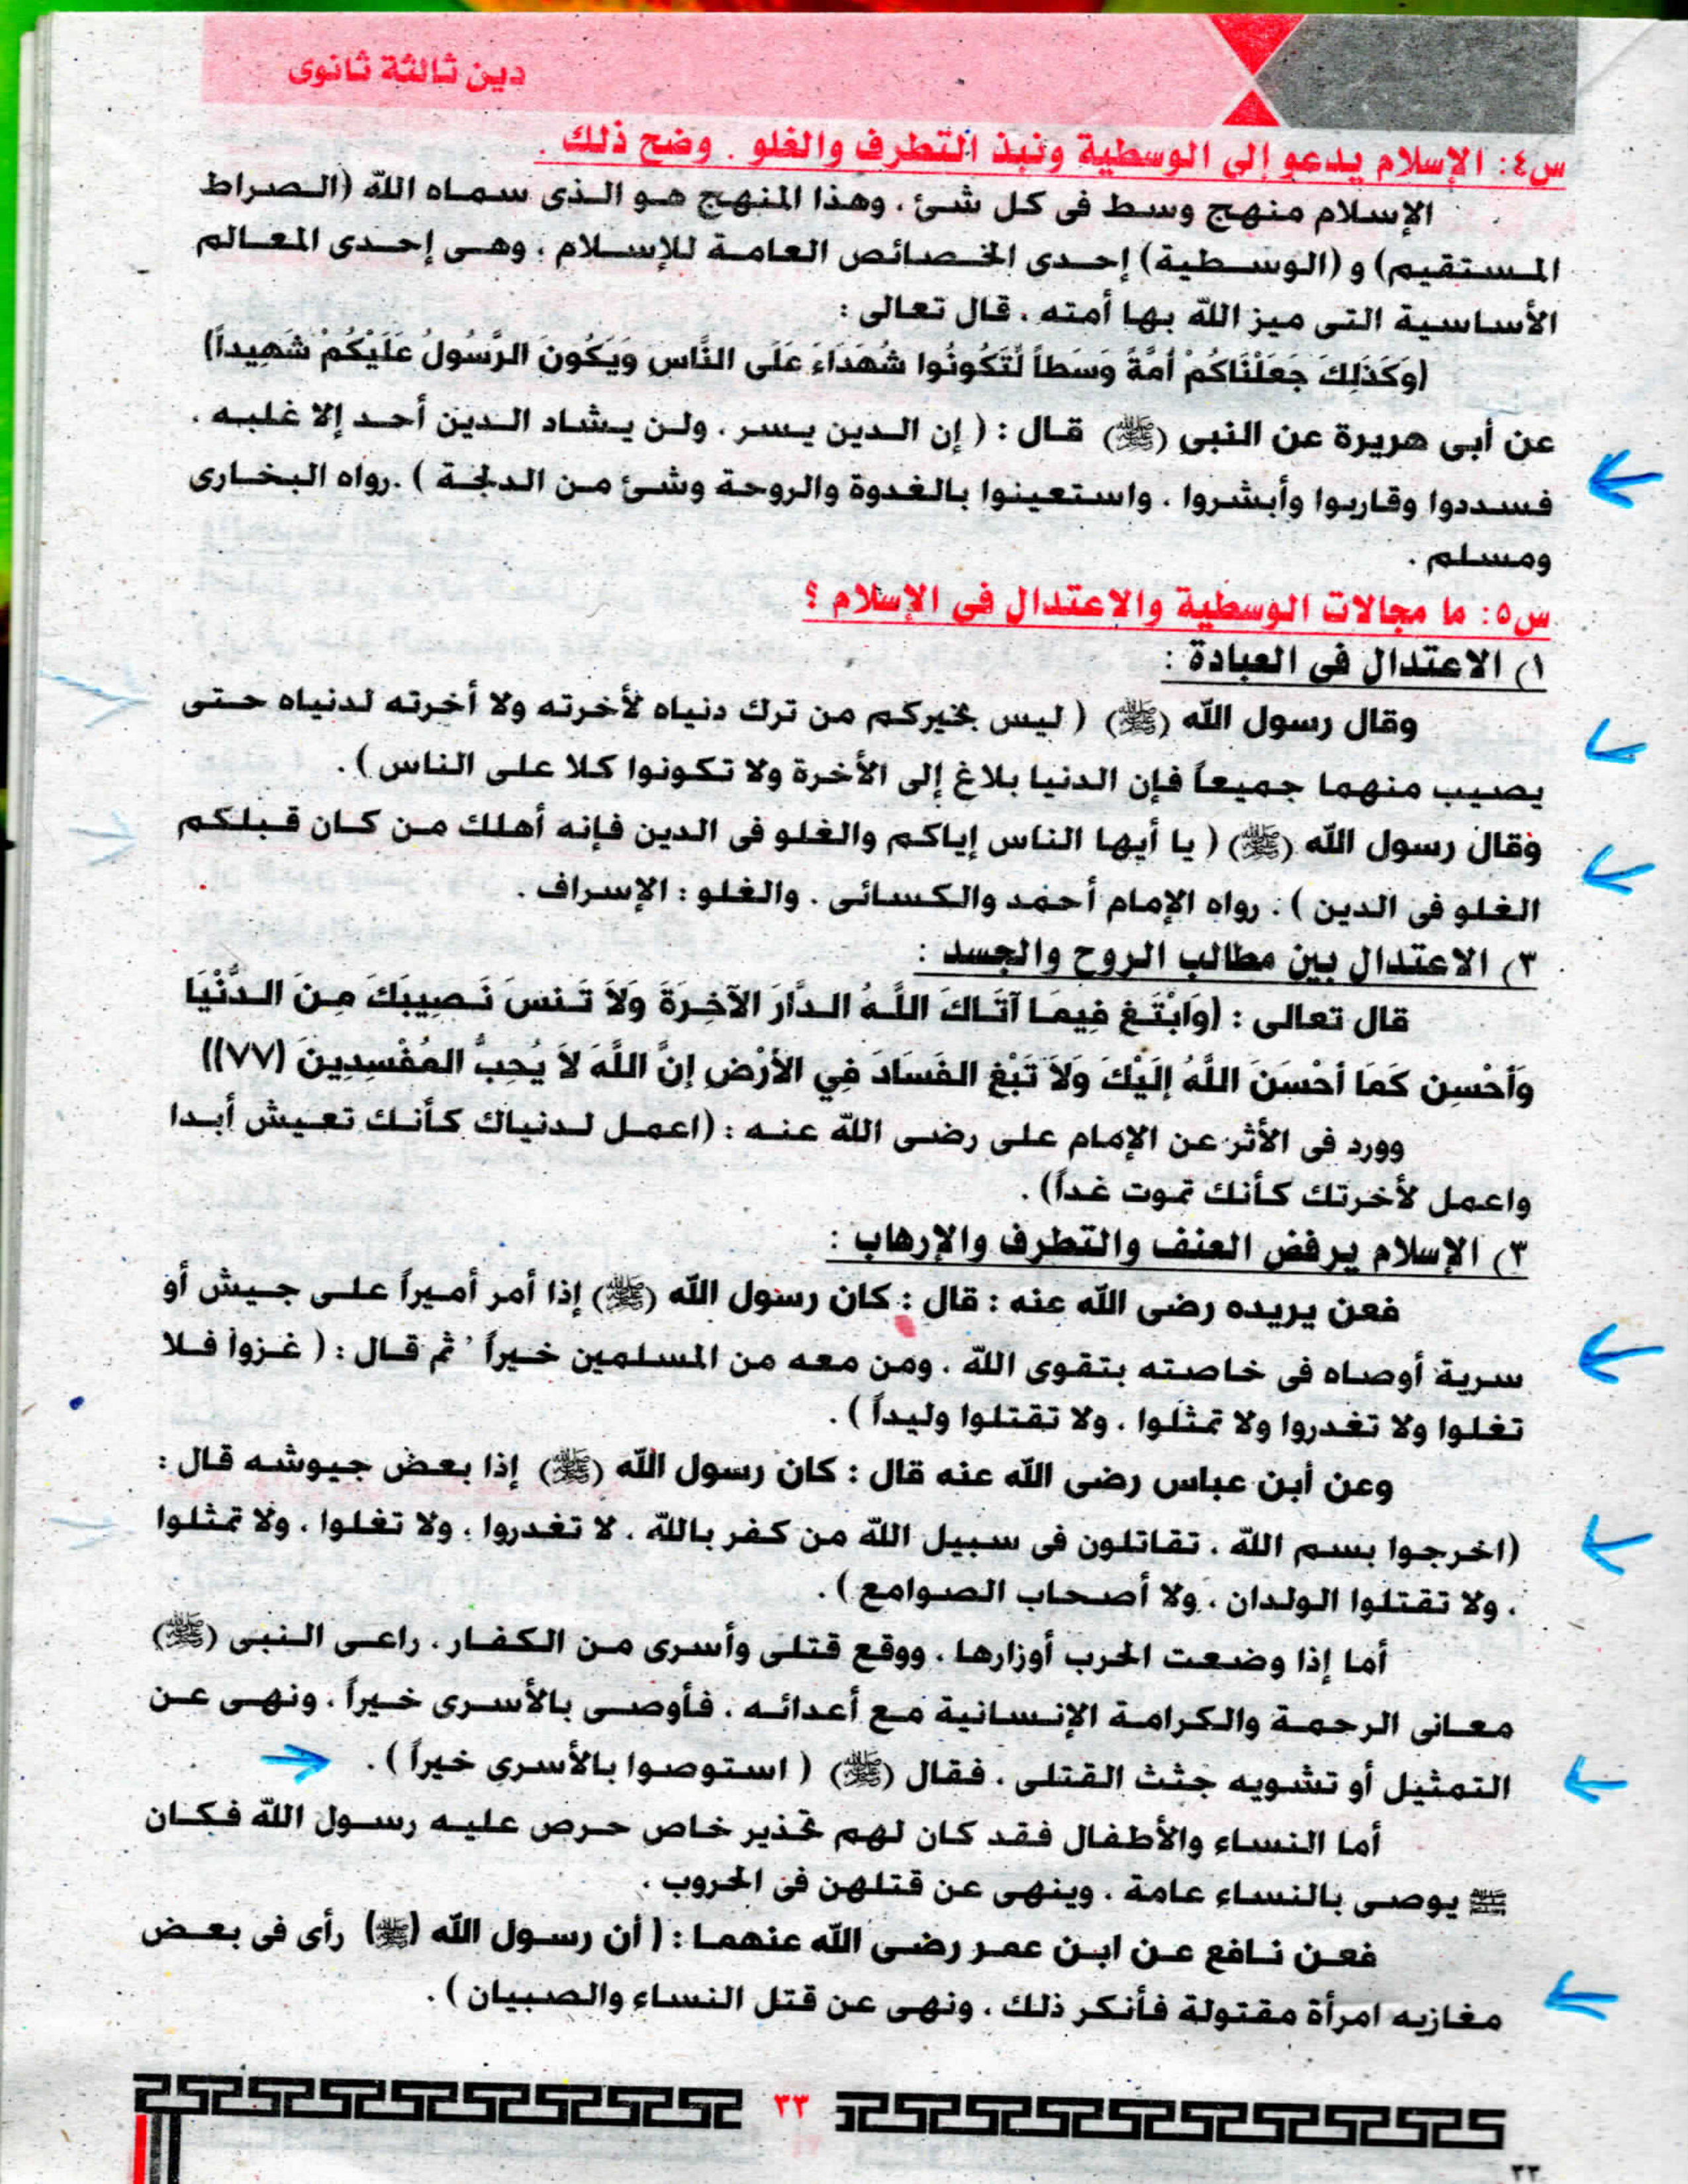 دين ثالثة ثانوى
س٤: الإسلام يدعو إلى الوسطية ونبذ التطرف والغلو . وضح ذلك .
الإسلام منهج وسط فى كل شئ ، وهذا المنهج هو الذى سماه الله (الصراط
المستقيم) و (الوسطية) إحدى الخصائص العامة للإسلام ، وهى إحدى المعالم
الأساسية التى ميز الله بها أمته . قال تعالى :
(وَكَذَلِكَ جَعَلْنَاكُمْ أُمَّةً وَسَطاً لِّتَكُونُوا شُهَدَاءَ عَلَى النَّاسِ وَيَكُونَ الرَّسُولُ عَلَيْكُمْ شَهِيداً)
عن أبى هريرة عن النبى (ﷺ) قال : ( إن الدين يسر . ولن يشاد الدين أحد إلا غلبه .
فسددوا وقاربوا وأبشروا . واستعينوا بالغدوة والروحة وشئ من الدلجة ) .رواه البخارى
ومسلم .
س٥: ما مجالات الوسطية والاعتدال فى الإسلام ؟
١) الاعتدال فى العبادة :
وقال رسول الله (ﷺ) ( ليس بخيركم من ترك دنياه لأخرته ولا أخرته لدنياه حتى
يصيب منهما جميعاً فإن الدنيا بلاغ إلى الأخرة ولا تكونوا كلا على الناس ) .
وقال رسول الله (ﷺ) ( يا أيها الناس إياكم والغلو فى الدين فإنه أهلك من كان قبلكم
الغلو فى الدين ) . رواه الإمام أحمد والكسائى . والغلو : الإسراف .
٣) الاعتدال بين مطالب الروح والجسد :
قال تعالى : (وَابْتَغِ فِيمَا آتَاكَ اللَّهُ الدَّارَ الآخِرَةَ وَلاَ تَنسَ نَصِيبَكَ مِنَ الدُّنْيَا
وَأَحْسِن كَمَا أَحْسَنَ اللَّهُ إِلَيْكَ وَلاَ تَبْغِ الفَسَادَ فِي الأَرْضِ إِنَّ اللَّهَ لاَ يُحِبُّ المُفْسِدِينَ (٧٧))
وورد فى الأثر عن الإمام على رضى الله عنه : (اعمل لدنياك كأنك تعيش أبدا
واعمل لأخرتك كأنك تموت غداً) .
٣) الإسلام يرفض العنف والتطرف والإرهاب :
فعن يريده رضى الله عنه : قال : كان رسول الله (ﷺ) إذا أمر أميراً على جيش أو
سرية أوصاه فى خاصته بتقوى الله . ومن معه من المسلمين خيراً ' ثم قال : ( غزوا فلا
تغلوا ولا تغدروا ولا تمثلوا . ولا تقتلوا وليداً ) .
وعن أبن عباس رضى الله عنه قال : كان رسول الله (ﷺ) إذا بعض جيوشه قال :
(اخرجوا بسم الله . تقاتلون فى سبيل الله من كفر بالله . لا تغدروا . ولا تغلوا . ولا تمثلوا
. ولا تقتلوا الولدان . ولا أصحاب الصوامع ) .
أما إذا وضعت الحرب أوزارها . ووقع قتلى وأسرى من الكفار . راعى النبى (ﷺ)
معانى الرحمة والكرامة الإنسانية مع أعدائه . فأوصى بالأسرى خيراً . ونهى عن
التمثيل أو تشويه جثث القتلى . فقال (ﷺ) ( استوصوا بالأسرى خيراً ) .
أما النساء والأطفال فقد كان لهم تحذير خاص حرص عليه رسول الله فكان
ﷺ يوصى بالنساء عامة . وينهى عن قتلهن فى الحروب .
فعن نافع عن ابن عمر رضى الله عنهما : ( أن رسول الله (ﷺ) رأى فى بعض
مغازيه امرأة مقتولة فأنكر ذلك . ونهى عن قتل النساء والصبيان ) .
٣٣
٣٣